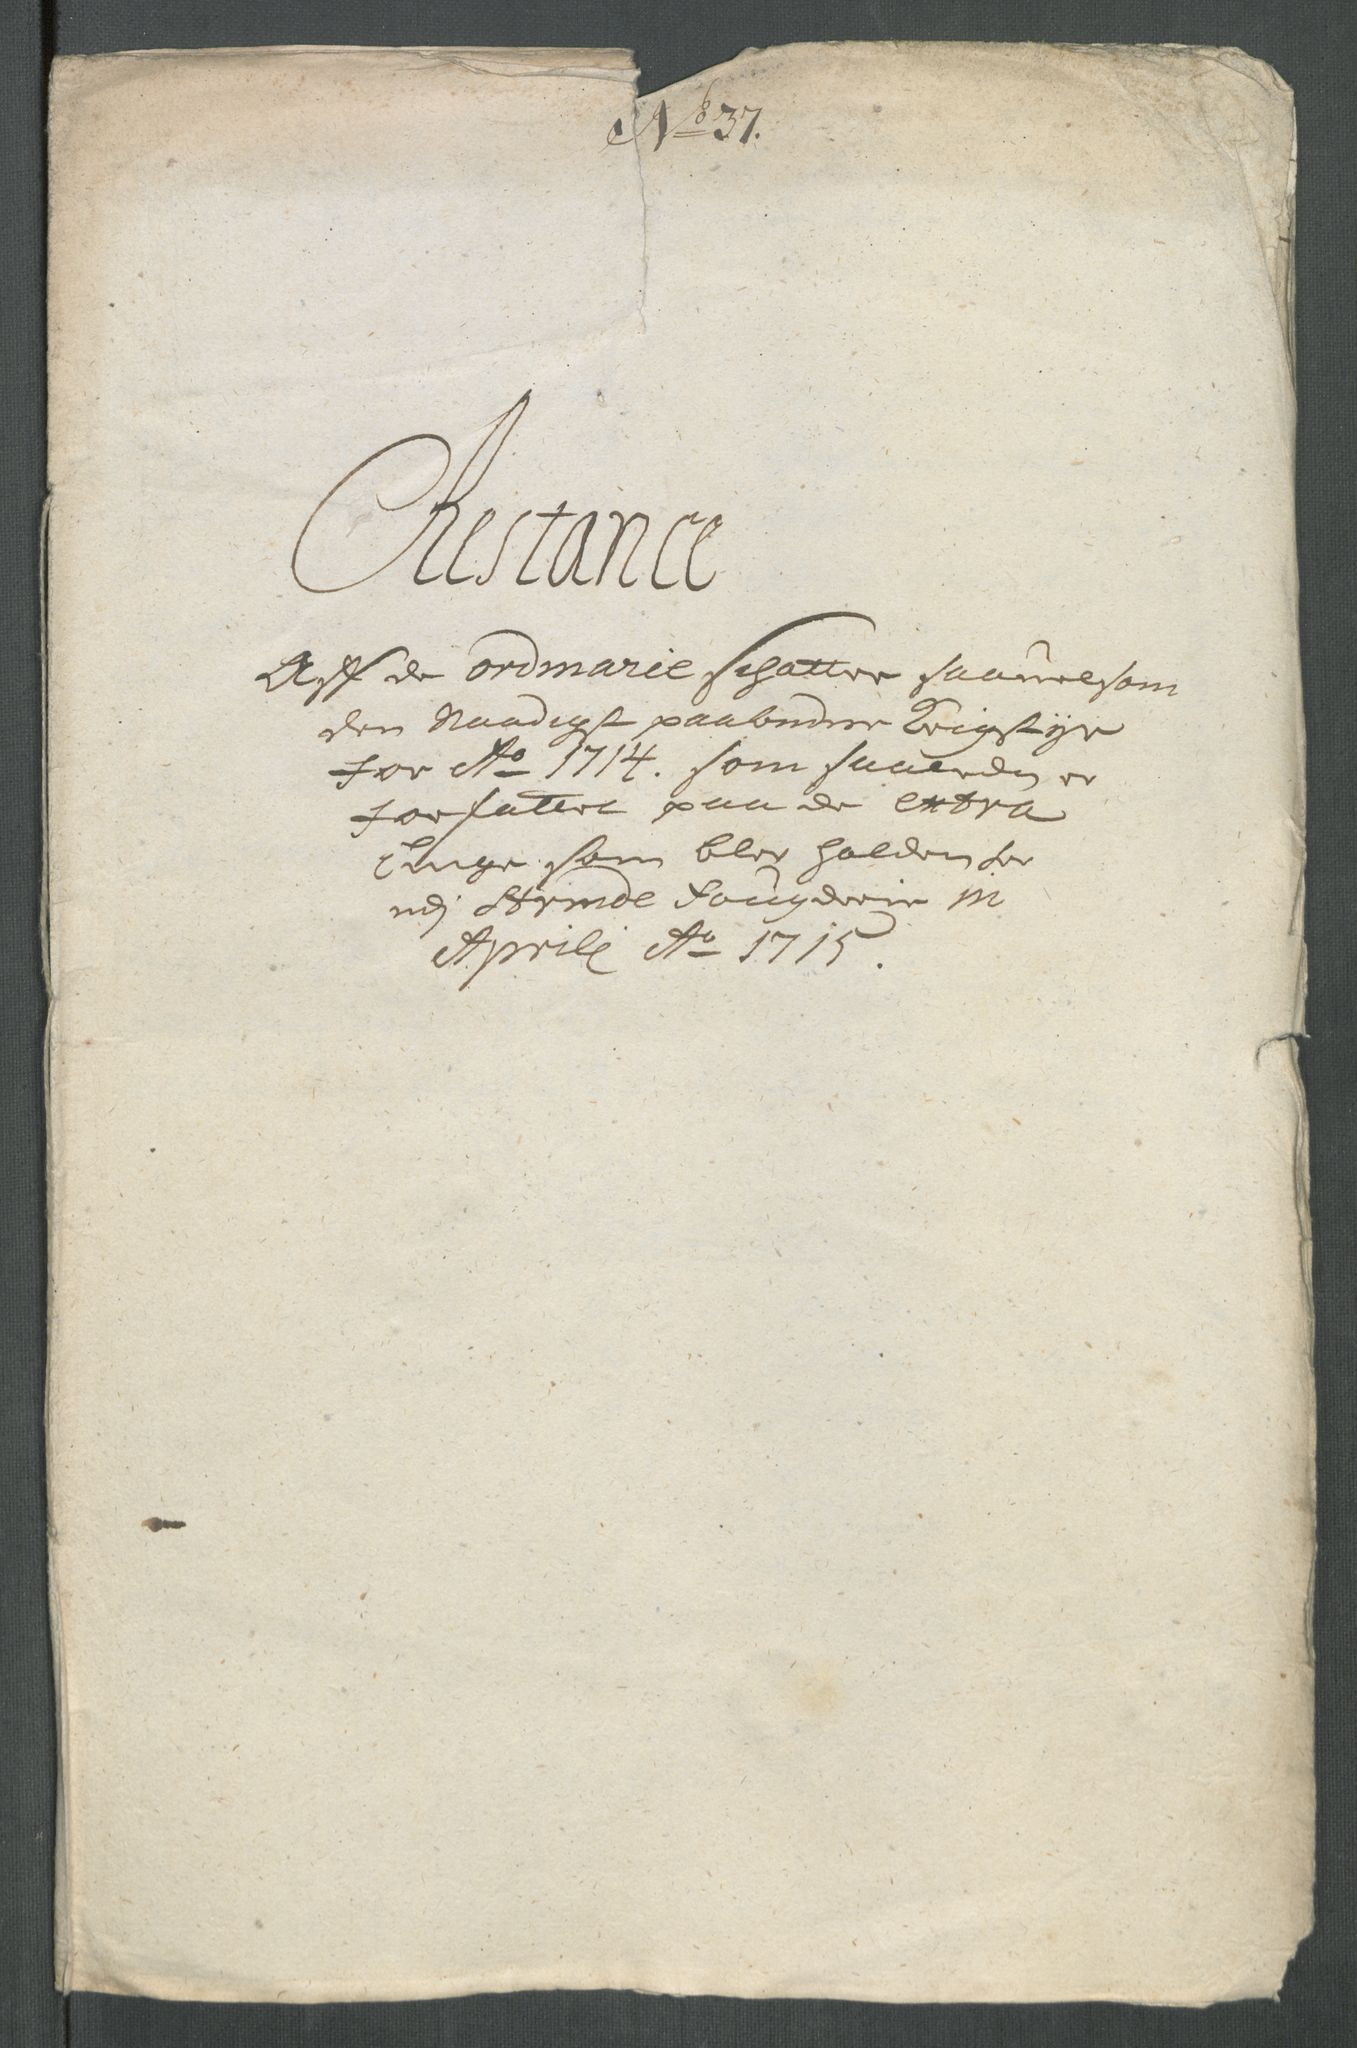 No 37.
Restance
Aff de ordinarie schatter saauelsom
den Naadigst paabudne Krigstyr
for Ao 1714. som saaledis er
forfattet paa de extra
Tinge som blev holden her
udj Strinde fougderie in
Aprili Ao 1715.